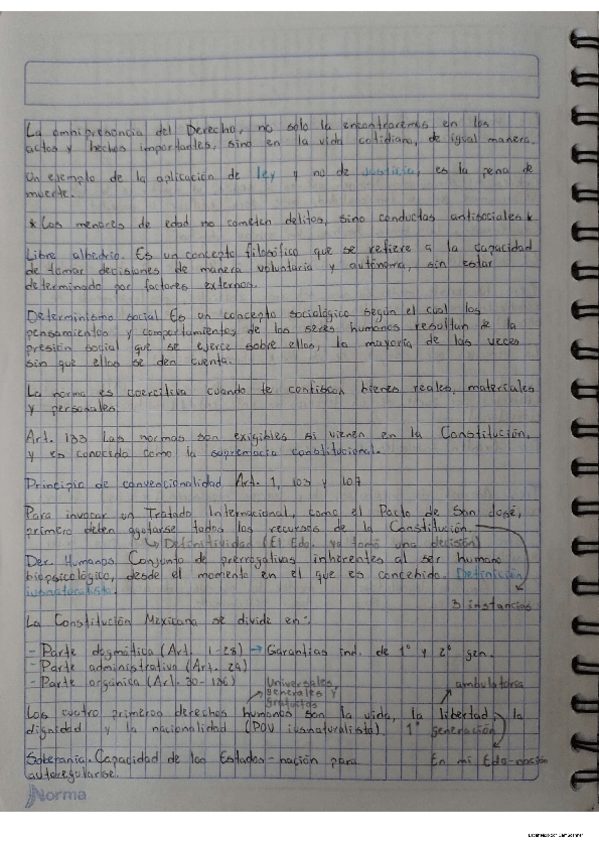 La omnipresencia del Derecho, no solo la encontraremos en los
actos y hechos importantes, sino en la vida cotidiana, de igual manera.
Un ejemplo de la aplicación de ley y no de justicia, es la pena de
muerte.
* Los menores de edad no cometen delitos, sino conductas antisociales *
Libre albedrío. Es un concepto filosófico que se refiere a la capacidad
de tomar decisiones de manera voluntaria y autónoma, sin estar
determinado por factores externos.
Determinismo social Es un concepto sociológico según el cual los
pensamientos y comportamientos de los seres humanos resultan de la
presión social que se ejerce sobre ellos, la mayoría de las veces
sin que ellos se den cuenta.
La norma es coercitiva cuando te confiscan bienes reales, materiales
y personales.
Art. 133 Las normas son exigibles si vienen en la Constitución,
y es conocida como la supremacía constitucional.
Principio de convencionalidad Art. 1, 103 y 107
Para invocar un Tratado Internacional, como el Pacto de San José,
primero deben agotarse todos los recursos de la Constitución.
Definitividad (El Edo. ya tomó una decisión)
Der. Humanos Conjunto de prerrogativas inherentes al ser humano
biopsicológico, desde el momento en el que es concebido. Definición
iusnaturalista.
3 instancias
La Constitución Mexicana se divide en:
- Parte dogmática (Art. 1-28) → Garantías ind. de 1° y 2° gen.
- Parte administrativa (Art. 29)
- Parte orgánica (Art. 30-136)
Universales,
generales y
gratuitos
ambulatoria
Los cuatro primeros derechos humanos son la vida, la libertad, la
dignidad y la nacionalidad (POV iusnaturalista). 1° generación
Soberanía. Capacidad de los Estados-nación para
autoregularse.
En mi Edo-nación
Norma